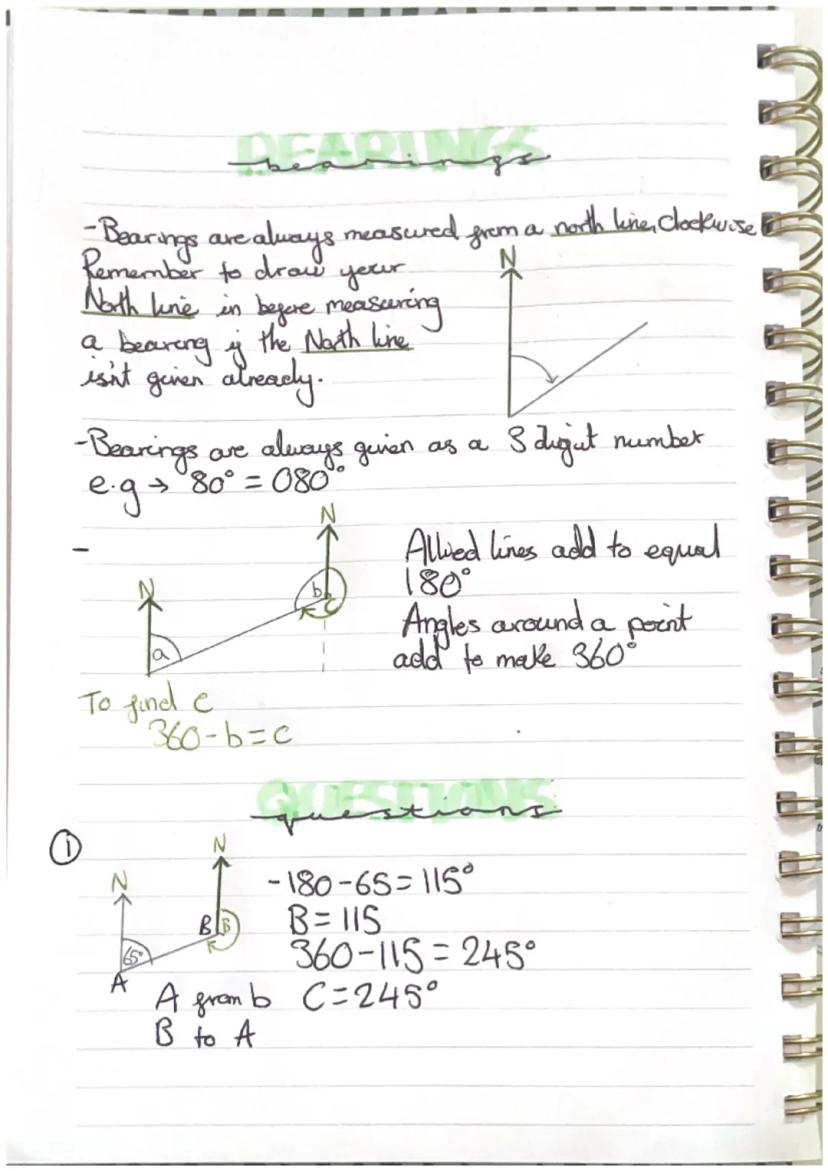 BEARINGS
bearings
-Bearings are always measured from a north line, clockwise
Remember to draw your
North line in before measuring
a bearing if the North line
isn't given already.
N
-Bearings are always given as a 3 digit number
e.g → 80° = 080°
-
N
N
a
b
C
Allied lines add to equal
180°
Angles around a point
add to make 360°
To find c
360-b=c
QUESTIONS
questions
①
N
N
65°
A
B
B
-180-65=115°
B=115
360-115=245°
A from b C=245°
B to A